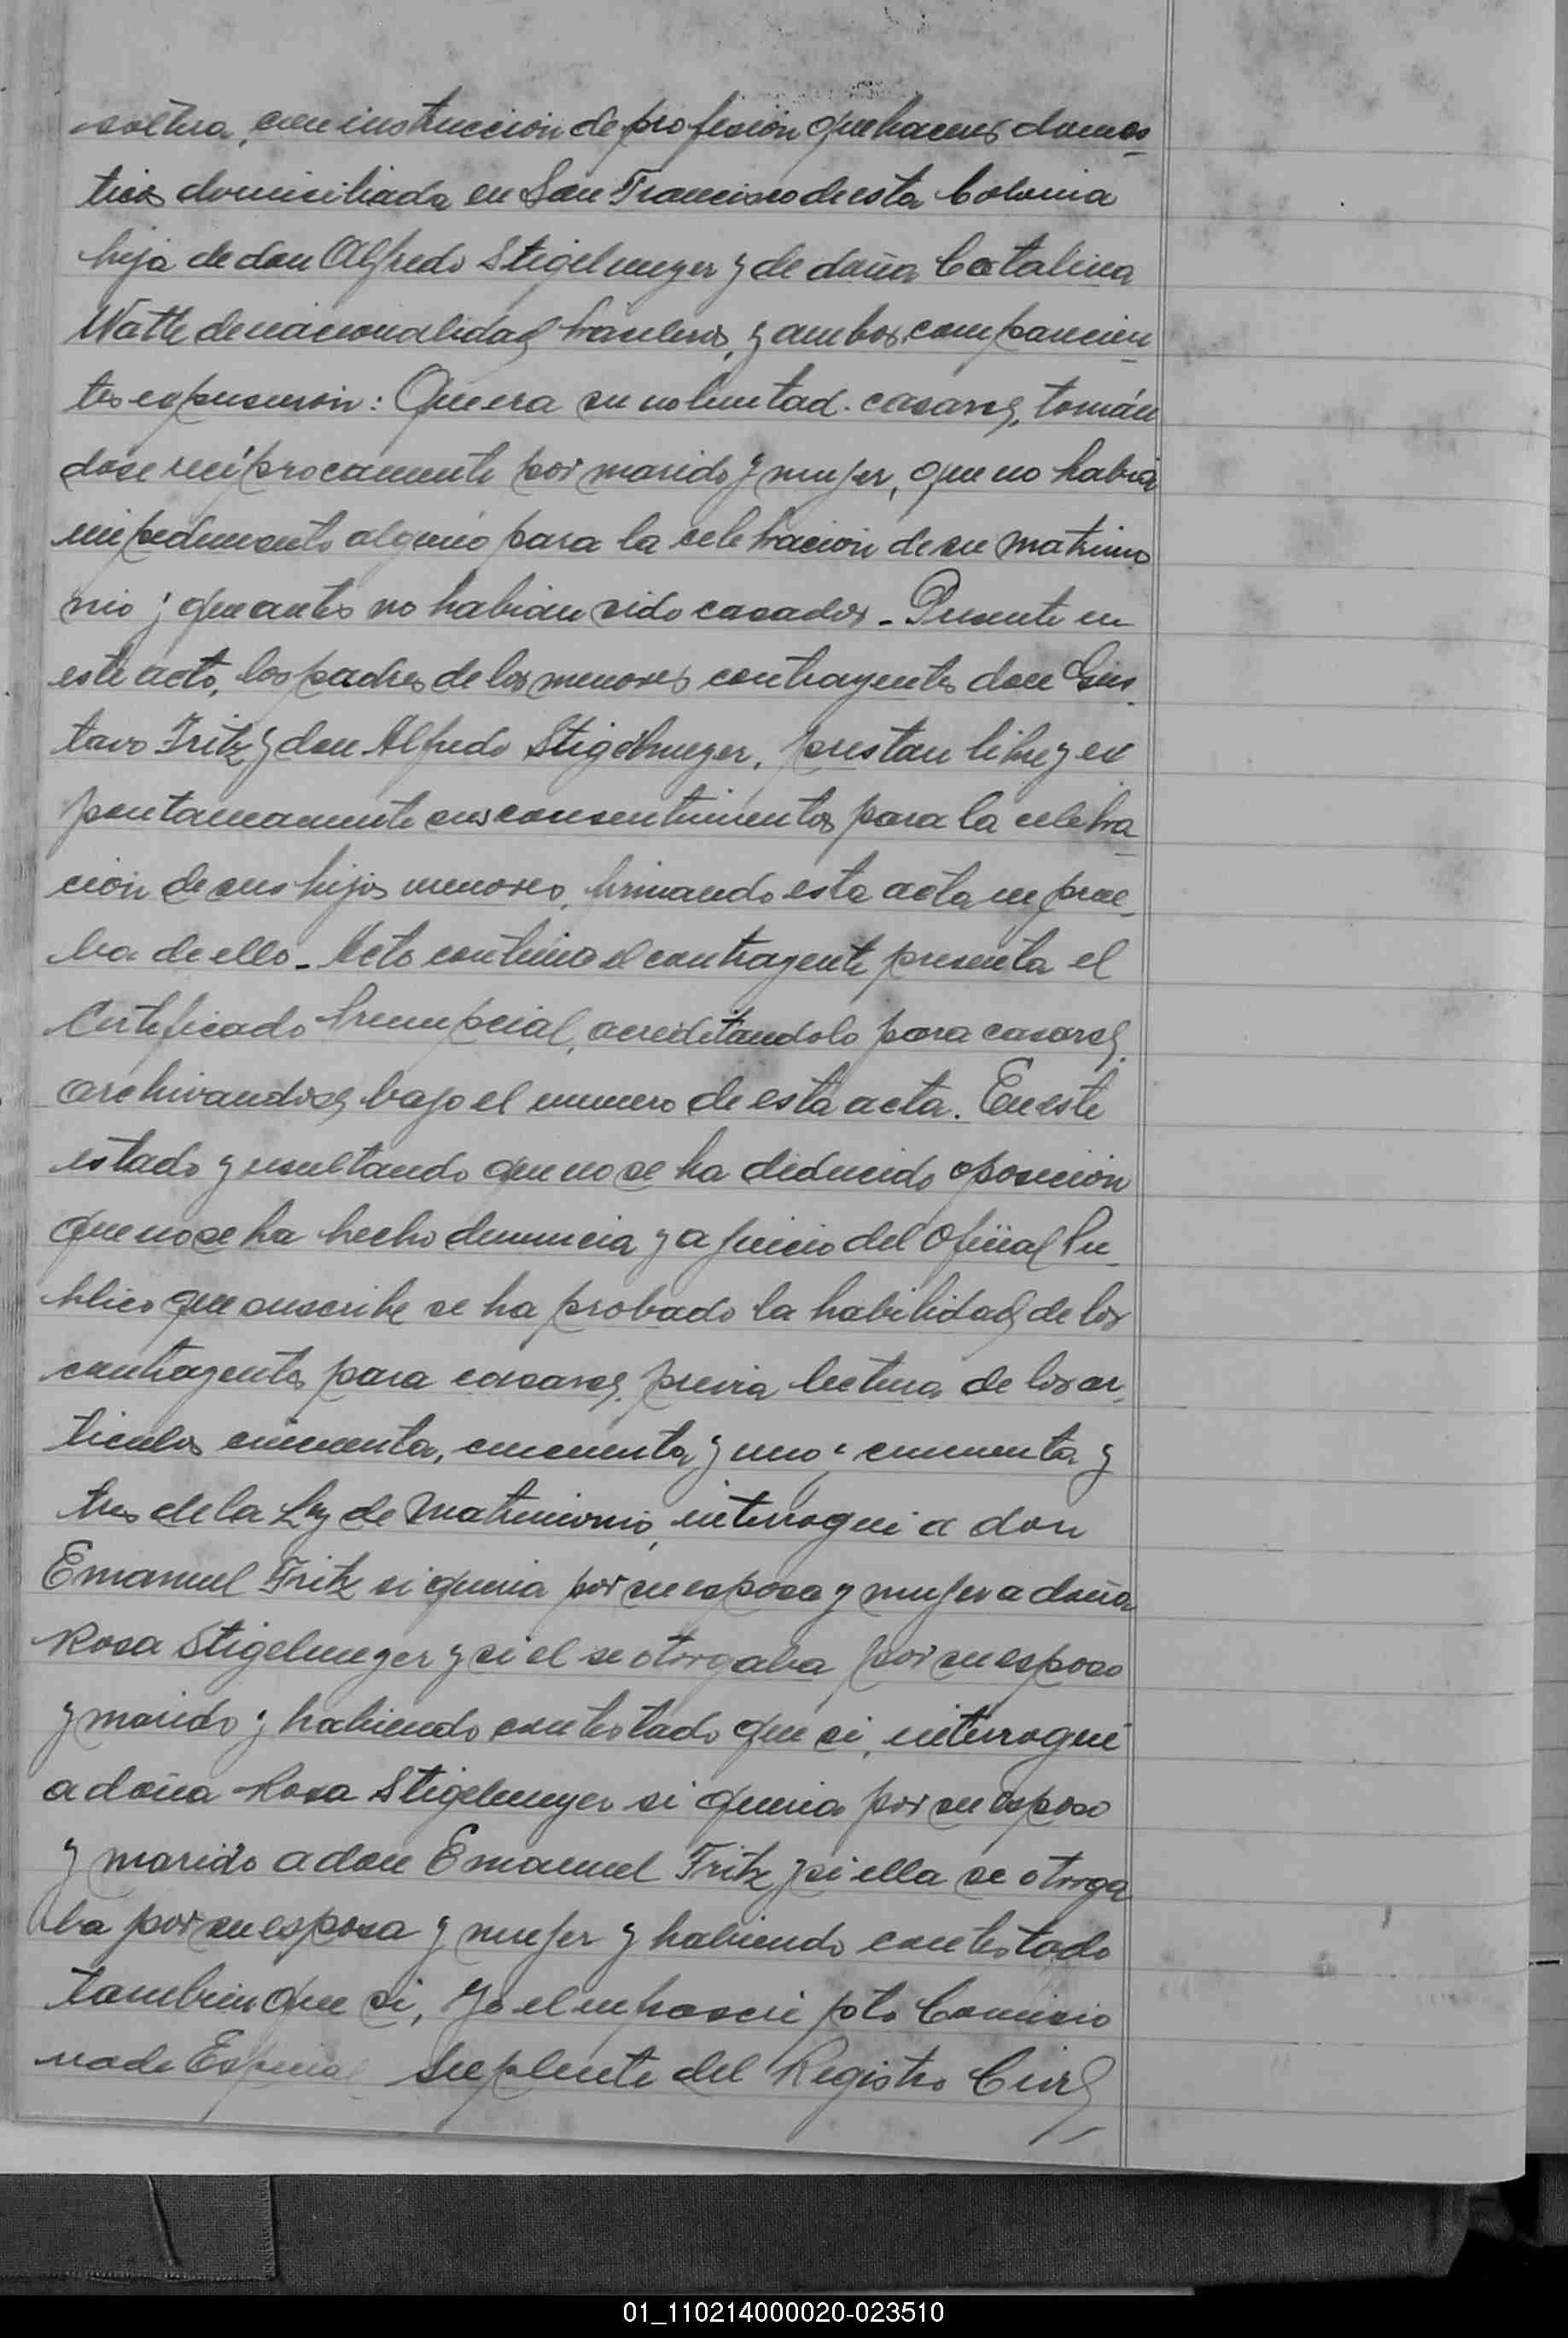 soltera, con instruccion de profesion quehaceres domes-
ticos domiciliada en San Francisco de esta Colonia
hija de don Alfredo Stigelmeyer y de doña Catalina
Watte de nacionalidad brasileros, y ambos comparecien-
tes expusieron: Que era su voluntad casarse, tomán
dose recíprocamente por marido y mujer, que no había
impedimento alguno para la celebracion de su matrimo
nio; que antes no habian sido casados - Presente en
este acto, los padres de los menores contrayentes don Gus-
tavo Fritz y don Alfredo Stigelmeyer, prestan libre y ex
pontaneamente sus consentimientos para la celebra-
cion de sus hijos menores, firmando esta acta en prue-
ba de ello - Acto continuo el contrayente presenta el
Certificado Prenupcial, acreditandolo para casarse,
archivandose bajo el numero de esta acta. En este
estado y resultando que no se ha deducido oposicion
que no se ha hecho denuncia y a juicio del Oficial Pu-
blico que suscribe se ha probado la habilidad de los
contrayentes para casarse, previa lectura de los ar-
ticulos cincuenta, cincuenta y uno, cincuenta y
tres de la Ley de Matrimonio, interrogué a don
Emanuel Fritz si queria por su esposa y mujer a doña
Rosa Stigelmeyer y si el se otorgaba por su esposo
y marido y habiendo contestado que si, interrogué
a doña Rosa Stigelmeyer si queria por su esposo
y marido a don Emanuel Fritz y si ella se otorga
ba por su esposa y mujer y habiendo contestado
tambien que si, Yo el infrascripto Comisio
nado Especial Suplente del Registro Civil
01_110214000020-023510